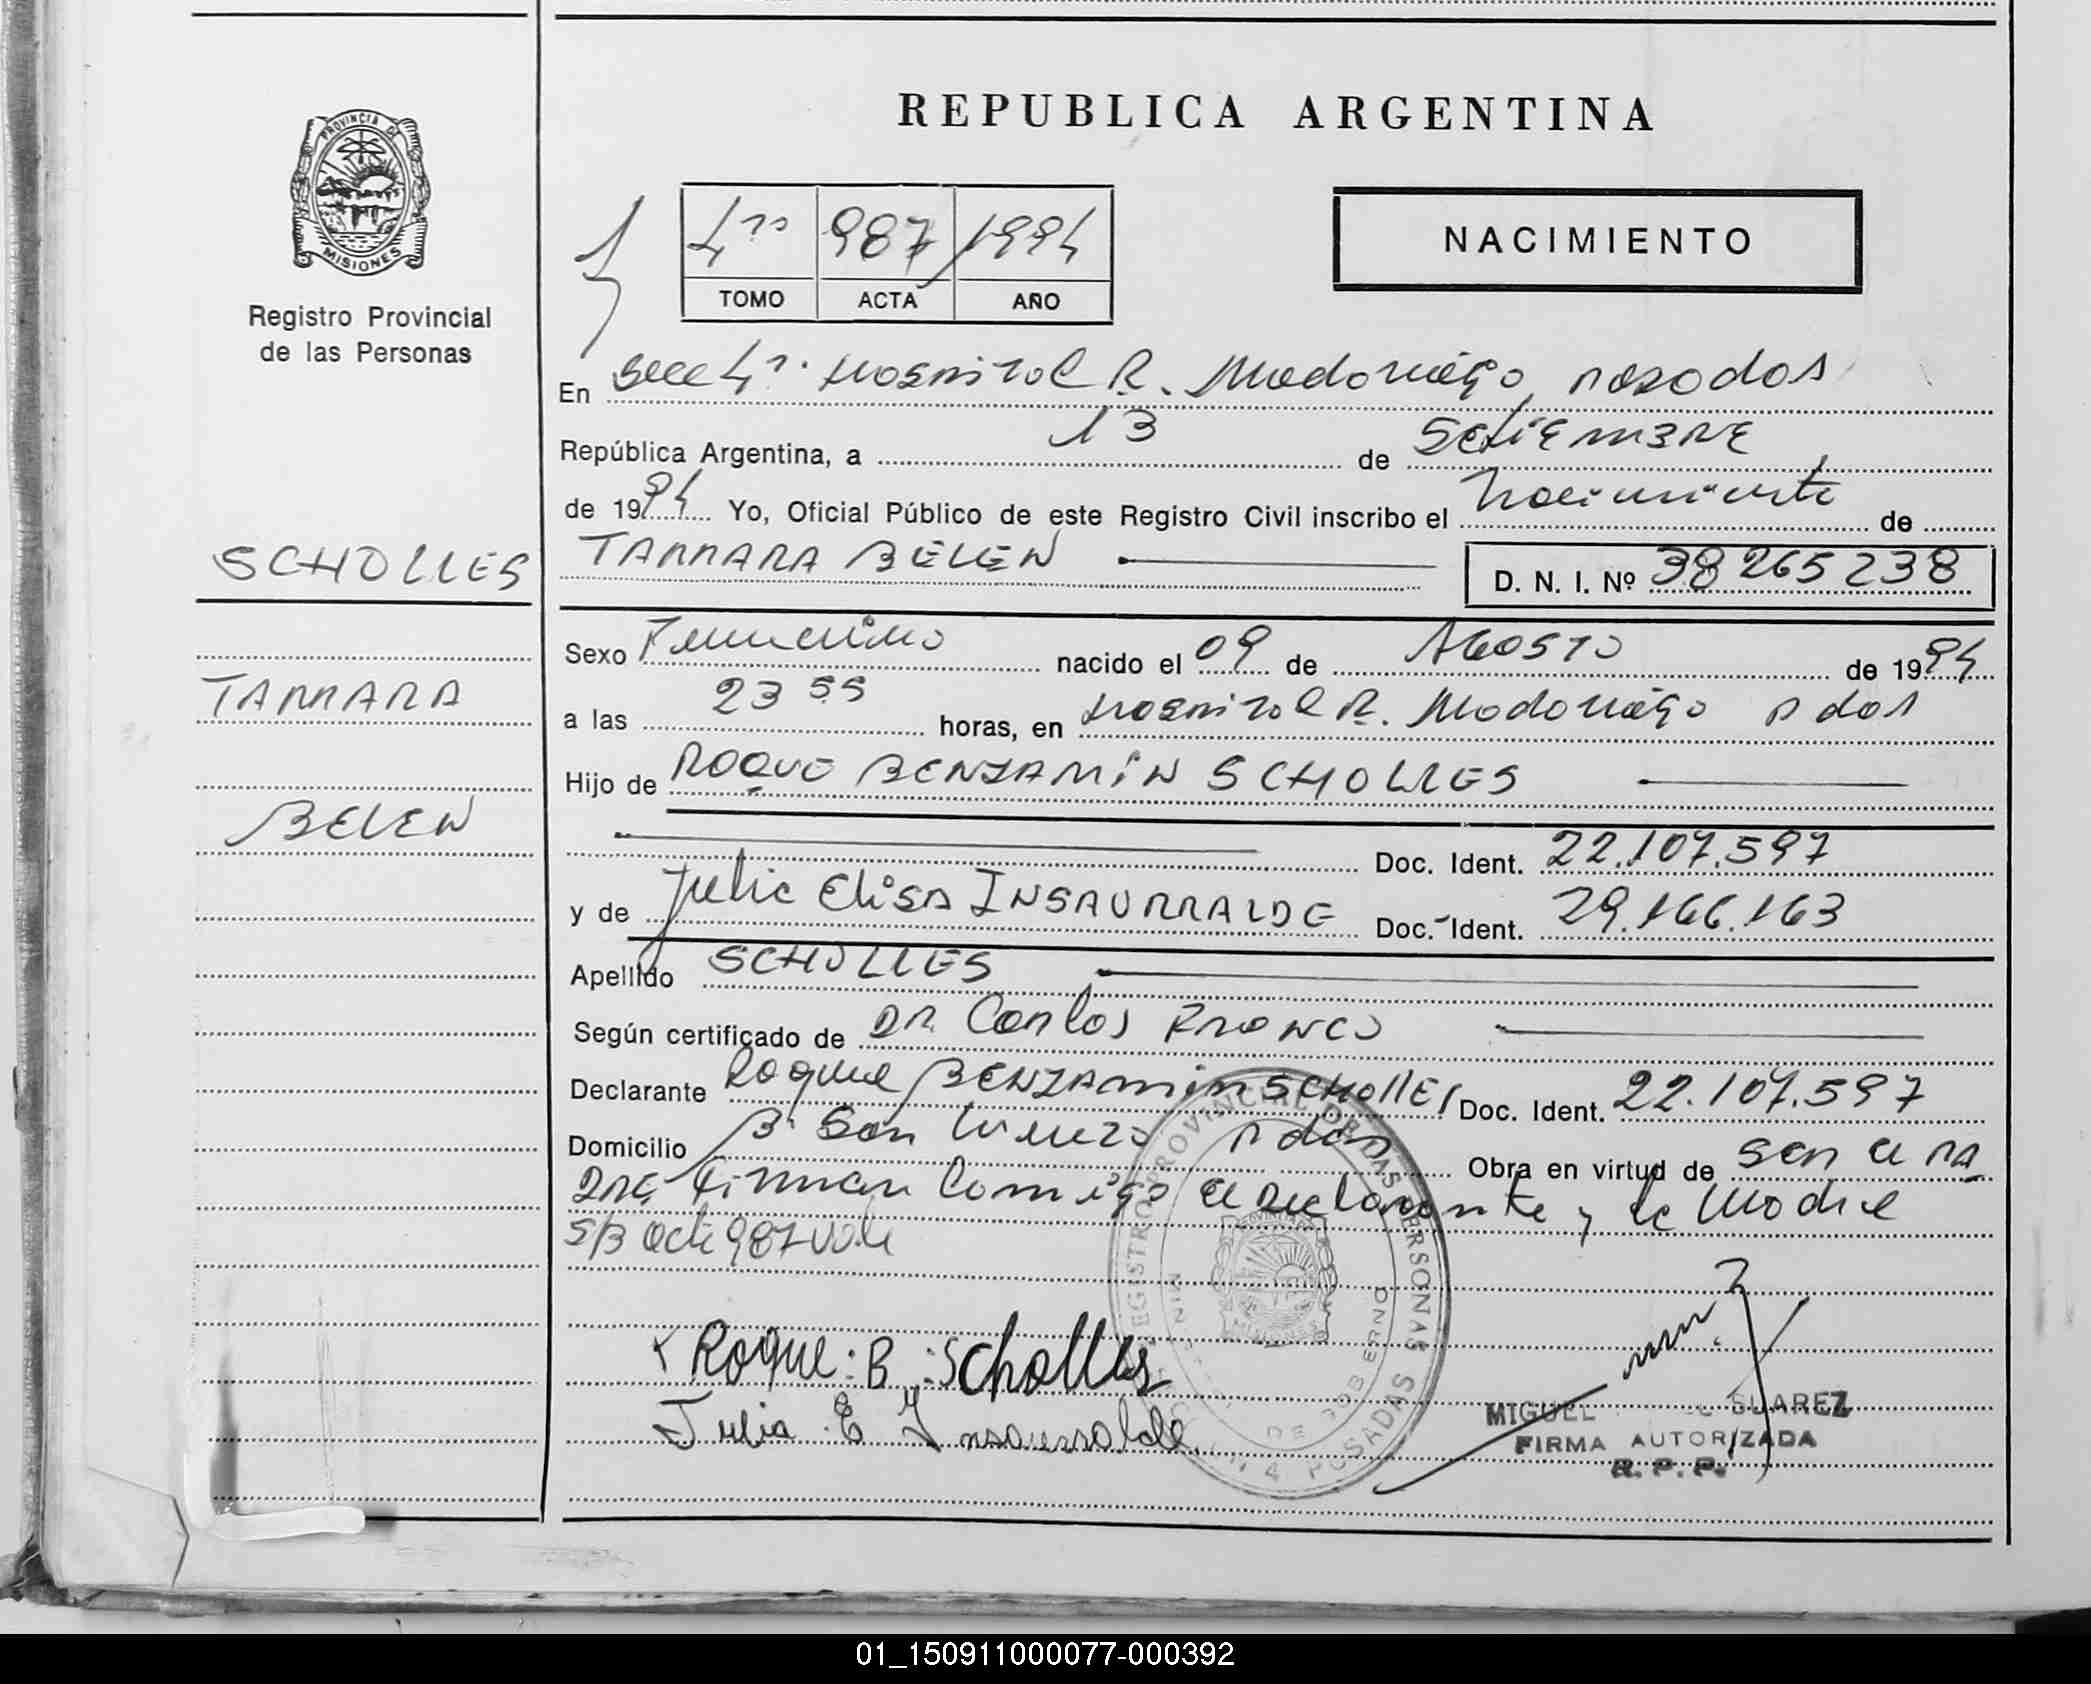 REPUBLICA ARGENTINA
PROVINCIA DE
MISIONES
Registro Provincial
de las Personas
4to 987 1994
TOMO ACTA AÑO
NACIMIENTO
En Secc 4ª. Hospital R. Madariaga posadas
República Argentina, a 13 de SETIEMBRE
de 1994 Yo, Oficial Público de este Registro Civil inscribo el Nacimiento de
SCHOLLES
TAMARA BELEN
D. N. I. Nº 38265238
Sexo Femenino nacido el 09 de AGOSTO de 1994
TAMARA
a las 23 55 horas, en Hospital R. Madariaga pdas
Hijo de ROQUE BENJAMIN SCHOLLES
BELEN
Doc. Ident. 22.107.597
y de Julia Elisa INSAURRALDE Doc. Ident. 29.166.163
Apellido SCHOLLES
Según certificado de DR. Carlos FRANCO
Declarante Roque BENJAMIN SCHOLLES Doc. Ident. 22.107.597
Domicilio Bº San Lorenzo pdas Obra en virtud de ser el PA
DRE, firman Conmigo el declarante y la Madre
S/B acta 987 vale
REGISTRO PROVINCIAL DE LAS PERSONAS
DE GOBIERNO
POSADAS
MISIONES
Roque : B. : Scholles
Julia E Insaurralde
MIGUEL SUAREZ
FIRMA AUTORIZADA
R. P. P.
01_150911000077-000392